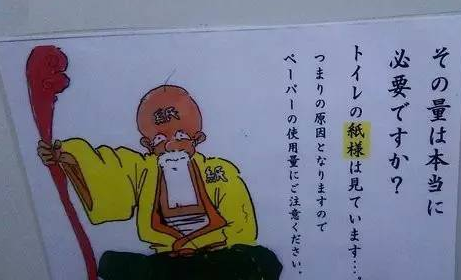 その量は本当に
必要ですか？
トイレの紙様は見ています…。
つまりの原因となりますので
ペーパーの使用量にご注意ください。
紙
紙